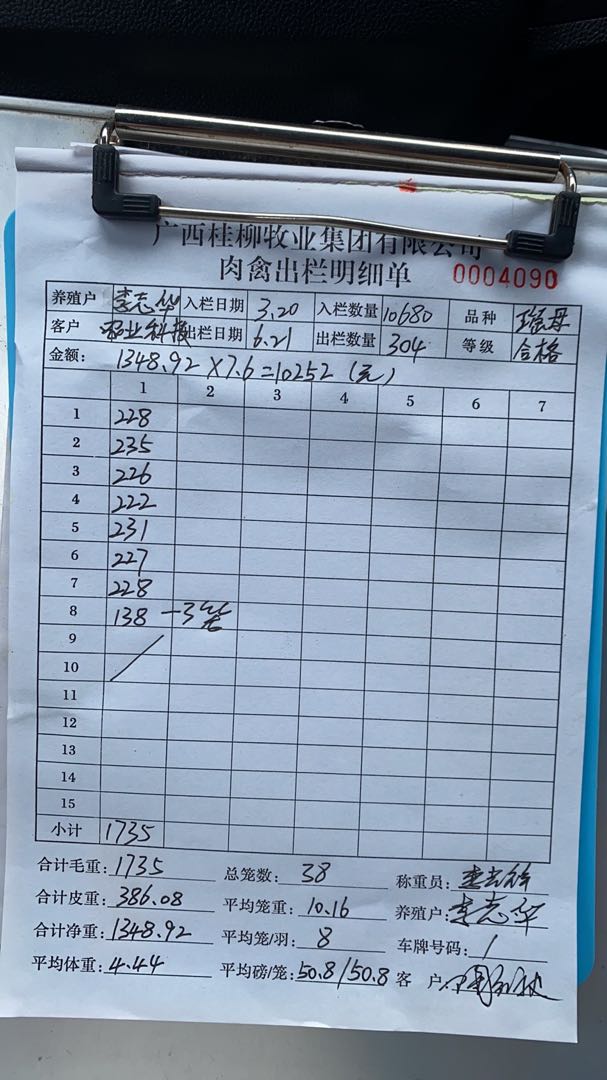 广西桂柳牧业集团有限公司
肉禽出栏明细单 0004090
养殖户 李志华 入栏日期 3.20 入栏数量 10680 品种
客户 出栏日期 6.21 出栏数量 304 等级 合格
金额: 1348.92×7.6=10252(元)
1 2 3 4 5 6 7
1 228
2 235
3 226
4 222
5 231
6 227
7 228
8 138 -3笼
9
10
11
12
13
14
15
小计 1735
合计毛重: 1735 总笼数: 38 称重员: 李志华
合计皮重: 386.08 平均笼重: 10.16 养殖户: 李志华
合计净重: 1348.92 平均笼/羽: 8 车牌号码: /
平均体重: 4.44 平均磅/笼: 50.8/50.8 客 户: